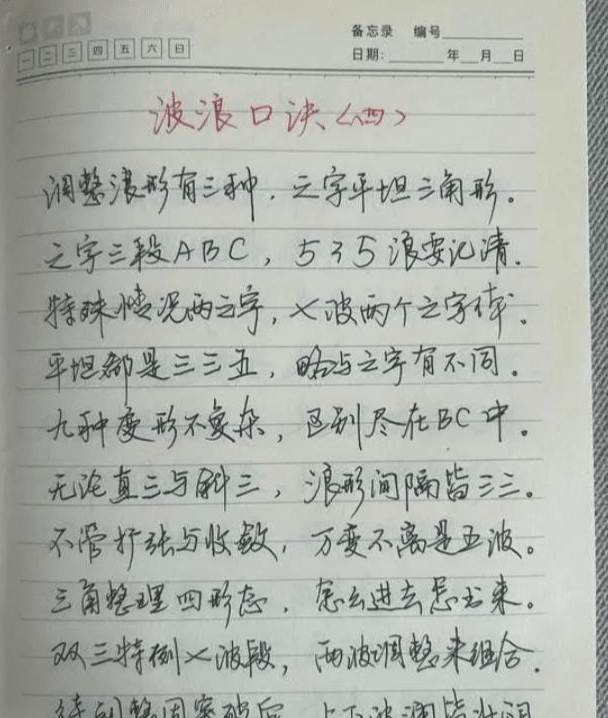 备忘录 编号
一 二 三 四 五 六 日
日期: 年 月 日
波浪口诀<四>
调整浪形有三种，之字平坦三角形。
之字三段ABC，535浪要记清.
特殊情况两之字，X波两个之字体.
平坦都是三三五，略与之字有不同.
九种变形不复杂，区别尽在BC中.
无论直三与斜三，浪形间隔皆三三。
不管扩张与收敛，万变不离是五波。
三角整理四形态，怎么进去怎出来。
双三特例X波段，两波调整来组合.